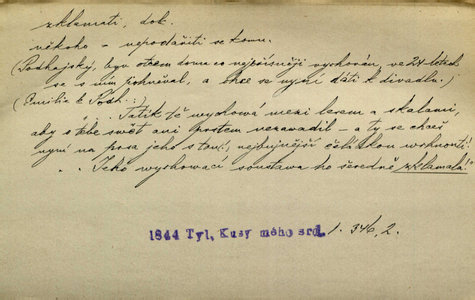 zklamati, dok.
někoho – nepodařiti se komu.
(Podhajský, byv otcem doma co nejpřísněji vychován, ve 24 letech
se s ním pohněval, a chce se nyní dáti k divadlu.)
(Emilie k Podh.:)
„.. Tatík tě wychowá mezi lesem a skalami,
aby o tebe swět ani prstem nezawadil – a ty se chceš
nyní na prsa jeho s tou nejbujnější čeládkou wrhnouti!
.. Jeho wychowací soustawa ho šeredně zklamala!"
1844 Tyl, Kusy mého srd. 1. 346, 2.